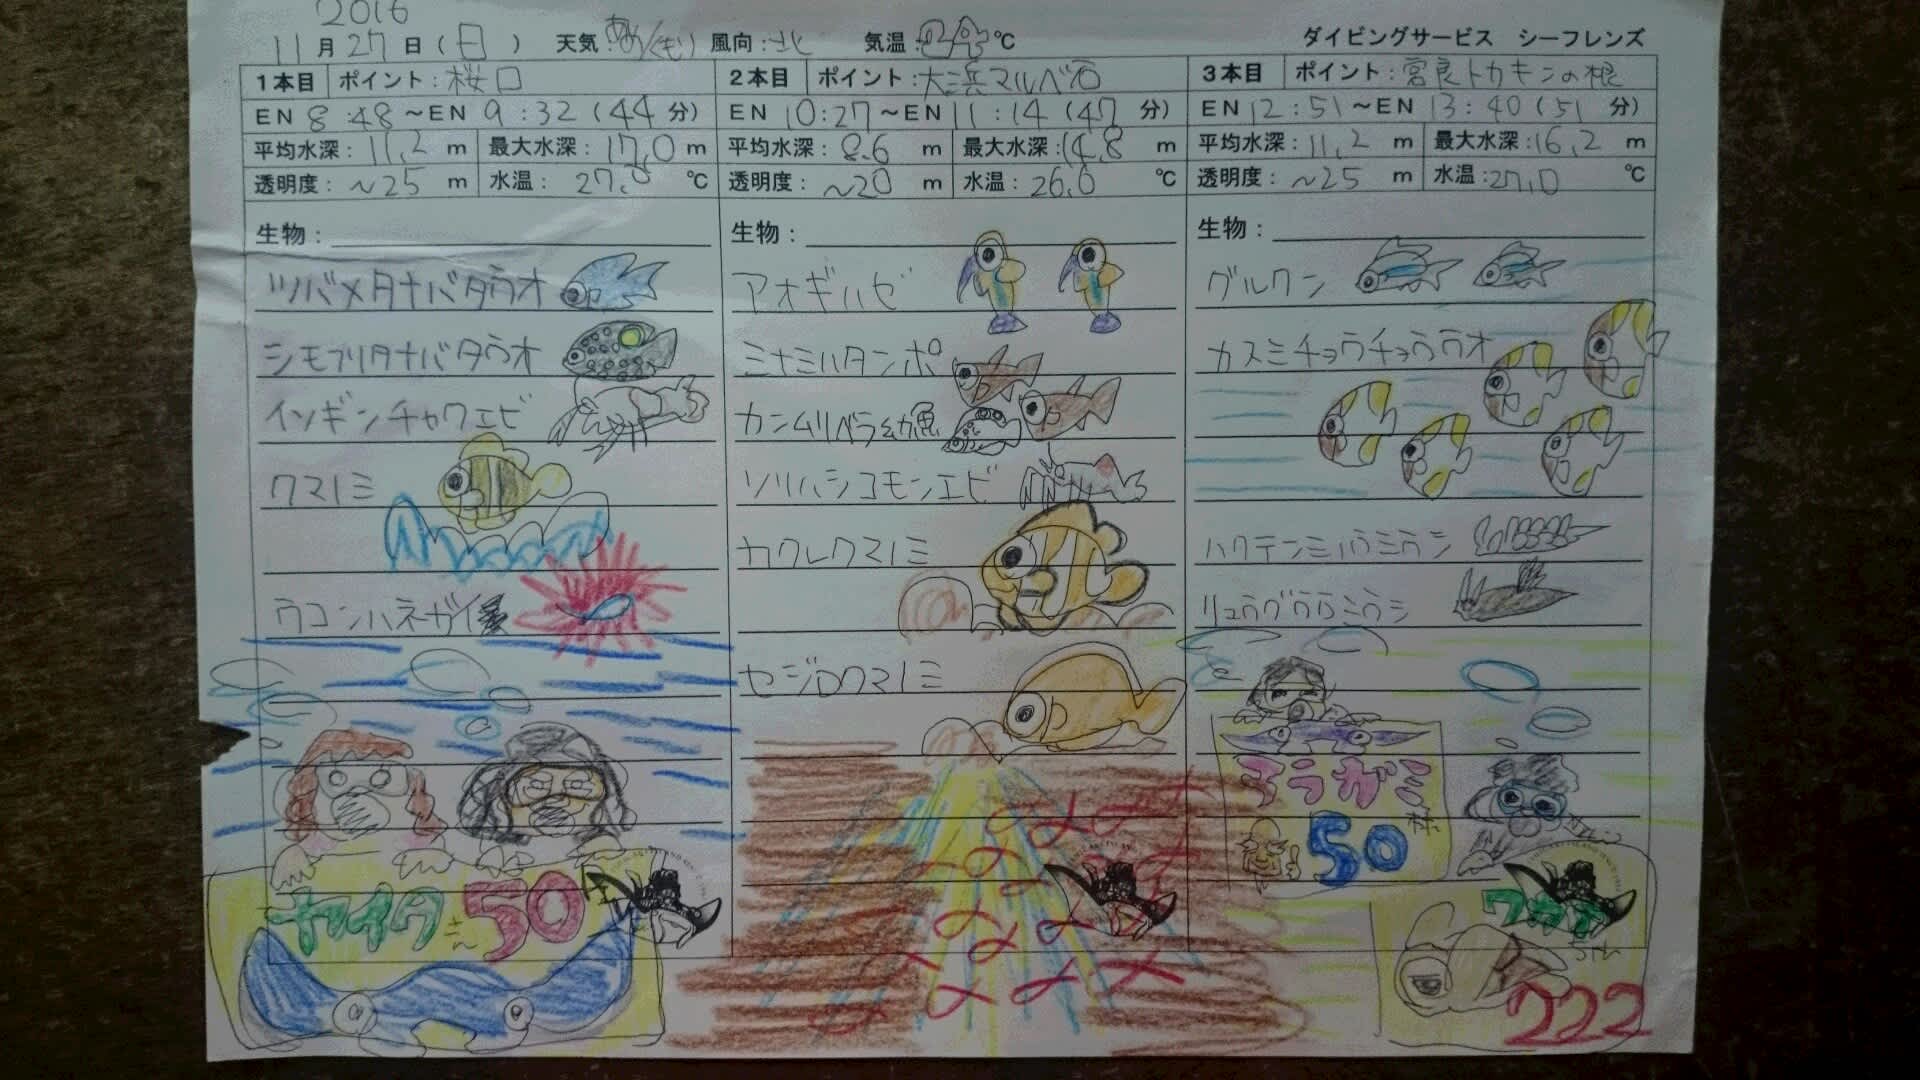 2016
11月27日(日) 天気: 風向:北 気温: ℃ ダイビングサービス シーフレンズ
1本目 ポイント:桜口
EN 8:48～EN 9:32(44分)
平均水深:11,2m 最大水深:17,0m
透明度:～25m 水温:27,0℃
生物:
ツバメタナバタウオ
シモフリタナバタウオ
イソギンチャクエビ
クマノミ
ウコンハネガイ
ケイタさん50
2本目 ポイント:大浜マルベ石
EN 10:27～EN 11:14(47分)
平均水深:8.6m 最大水深:14,8m
透明度:～20m 水温:26,0℃
生物:
アオギハゼ
ミナミハタンポ
カンムリベラ幼魚
ソリハシコモンエビ
カクレクマノミ
セジロクマノミ
3本目 ポイント:宮良トカキンの根
EN 12:51～EN 13:40(51分)
平均水深:11,2m 最大水深:16,2m
透明度:～25m 水温:27,0℃
生物:
グルクン
カスミチョウチョウウオ
ハクテンミノウミウシ
リュウグウウミウシ
50本
222